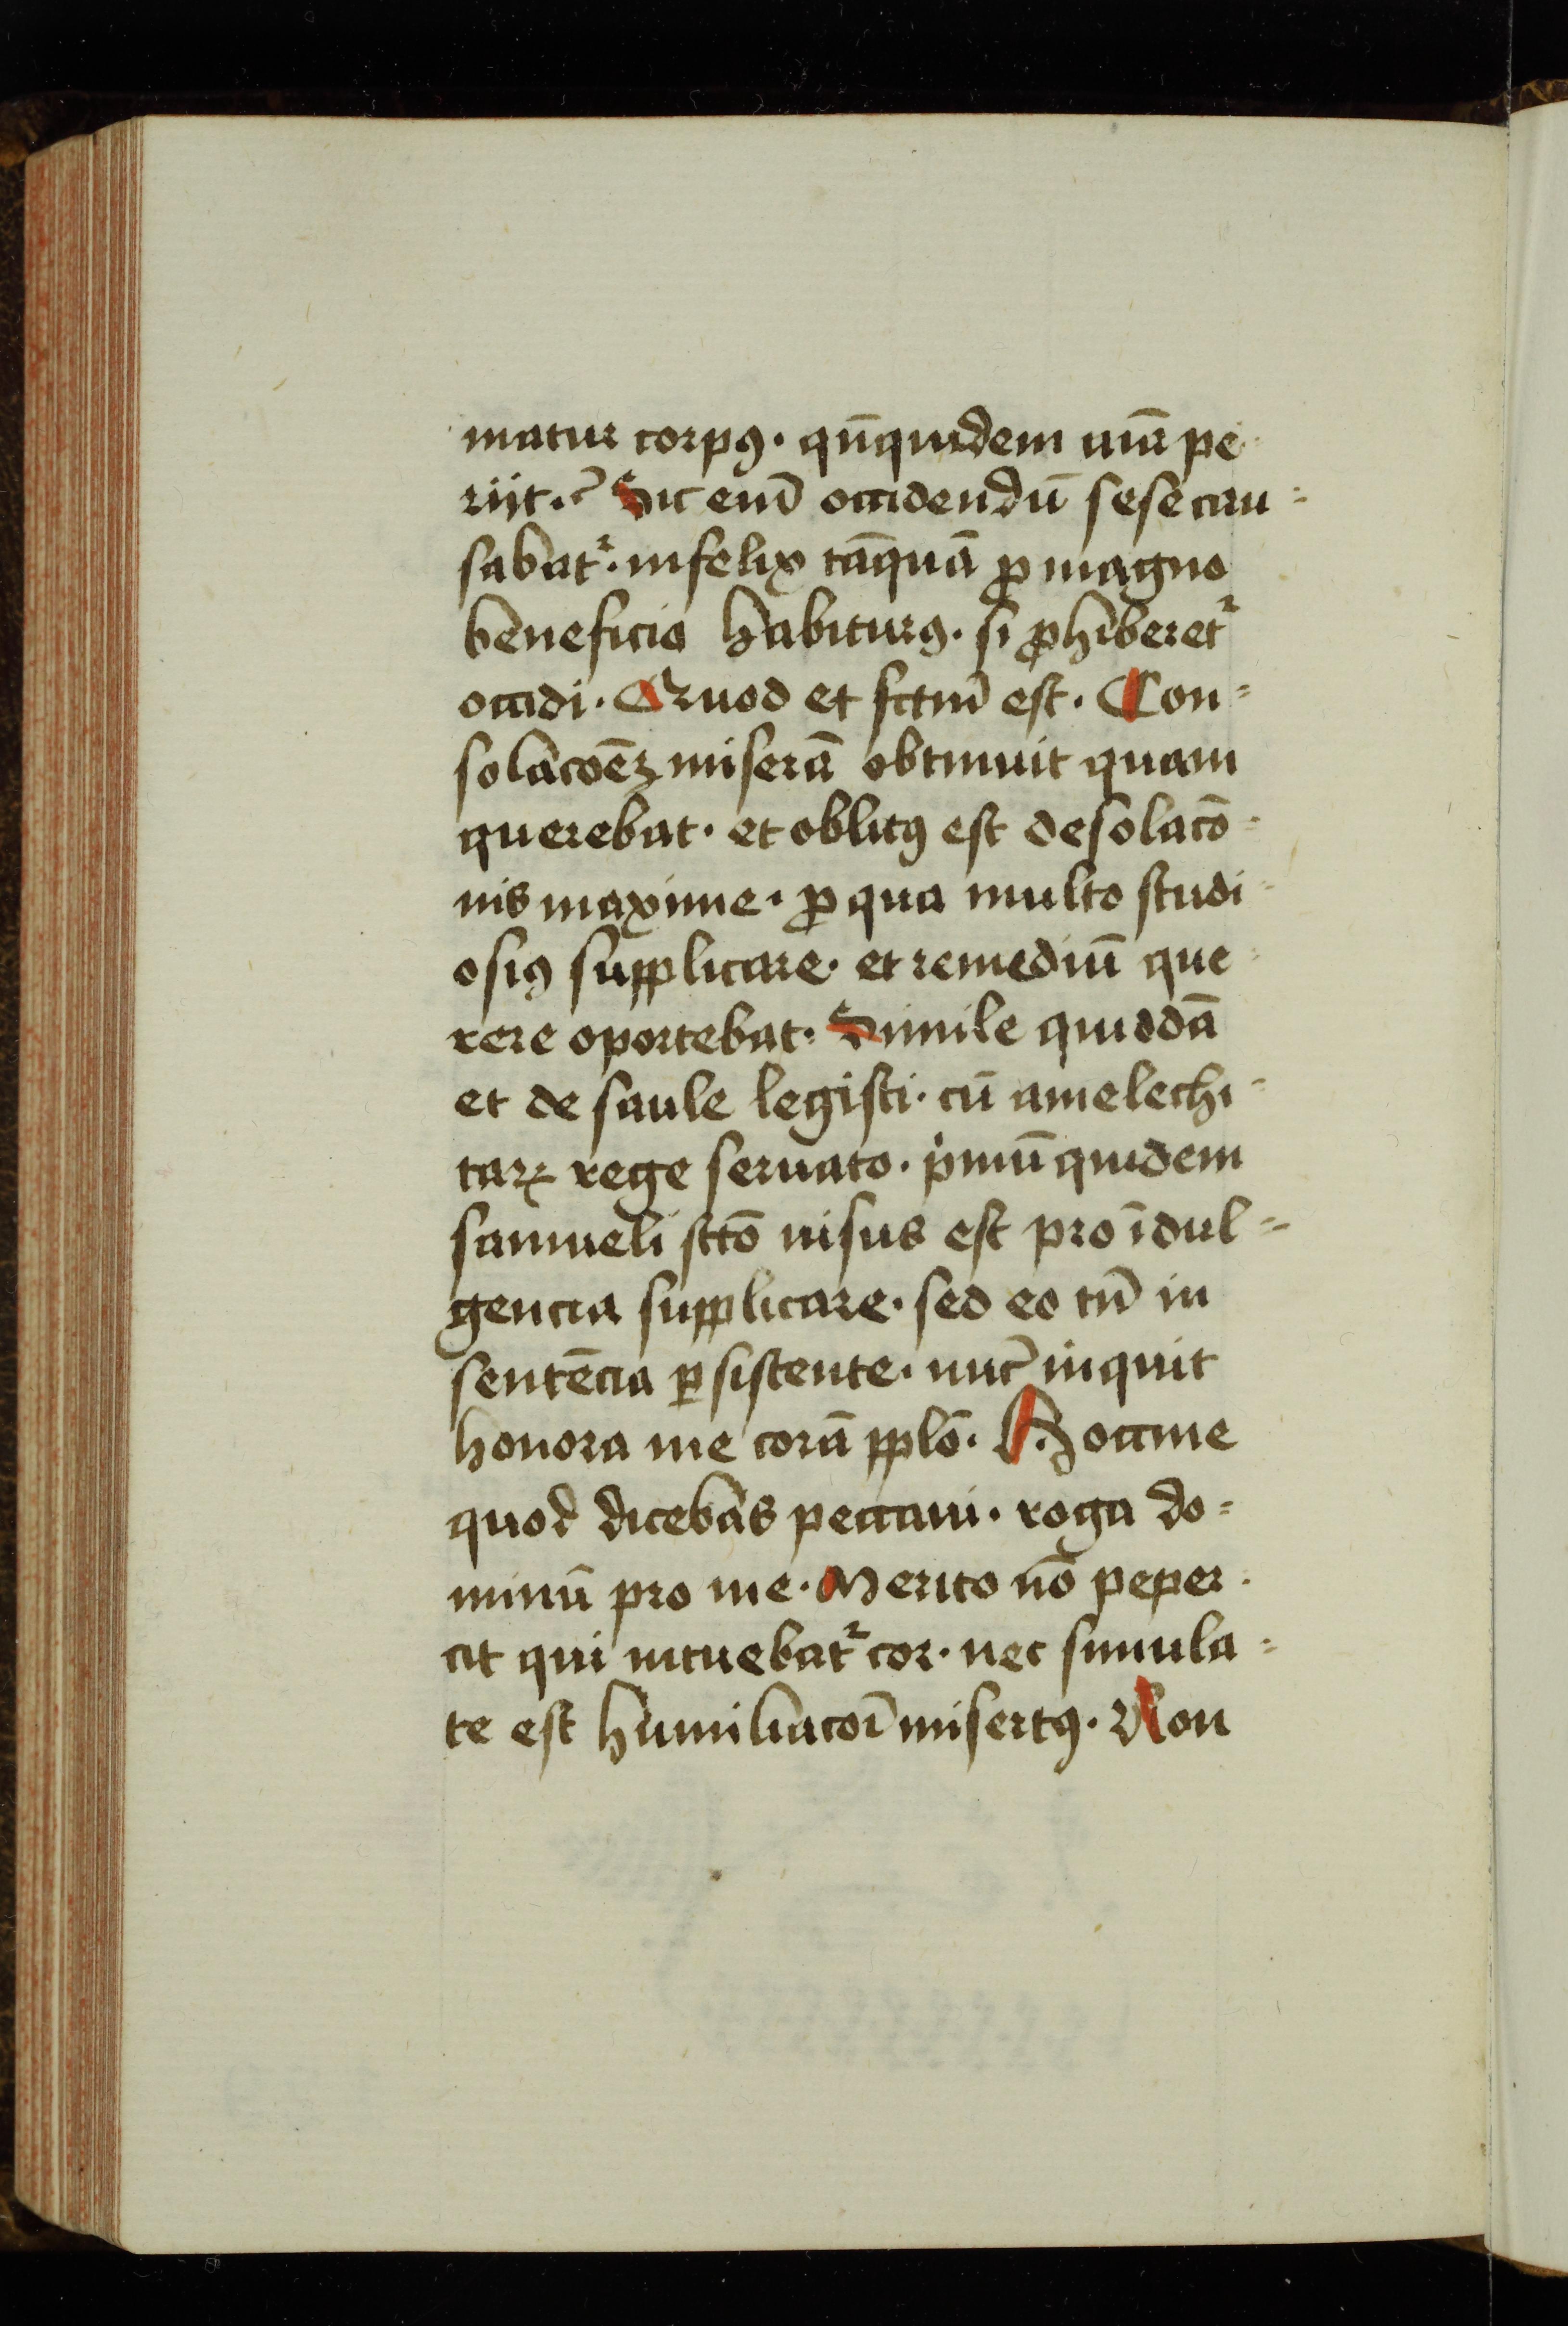 matur corpꝰ· qn̄quidem aīa pe-
rijt.? Sic enī occidendū sese cau=
sabatʳ· infelix tāquā ꝓ magno
beneficio habiturꝰ· si ꝓhiberetʳ
occidi· Quod et fctm̄ est· Con=
solacōeꝫ miserā obtinuit quam
querebat· et oblitꝰ est desolacō-
nis maxime· ꝓ qua multo studi-
osiꝰ supplicare· et remediū que-
rere oportebat· Simile quiddā
et de saule legisti· cū amelechi=
taꝝ rege seruato· p̍mū quidem
samueli sctō nisus est pro īdul=
gencia supplicare· sed eo tn̄ in
sentēcia ꝑsistente· nūc inquit
honora me corā pplō· Hoccine
quod dicebas peccaui· roga do=
minū pro me· Merito nō peper-
cit qui intuebatʳ cor· nec simula=
te est humiliacōi misertꝰ· Non